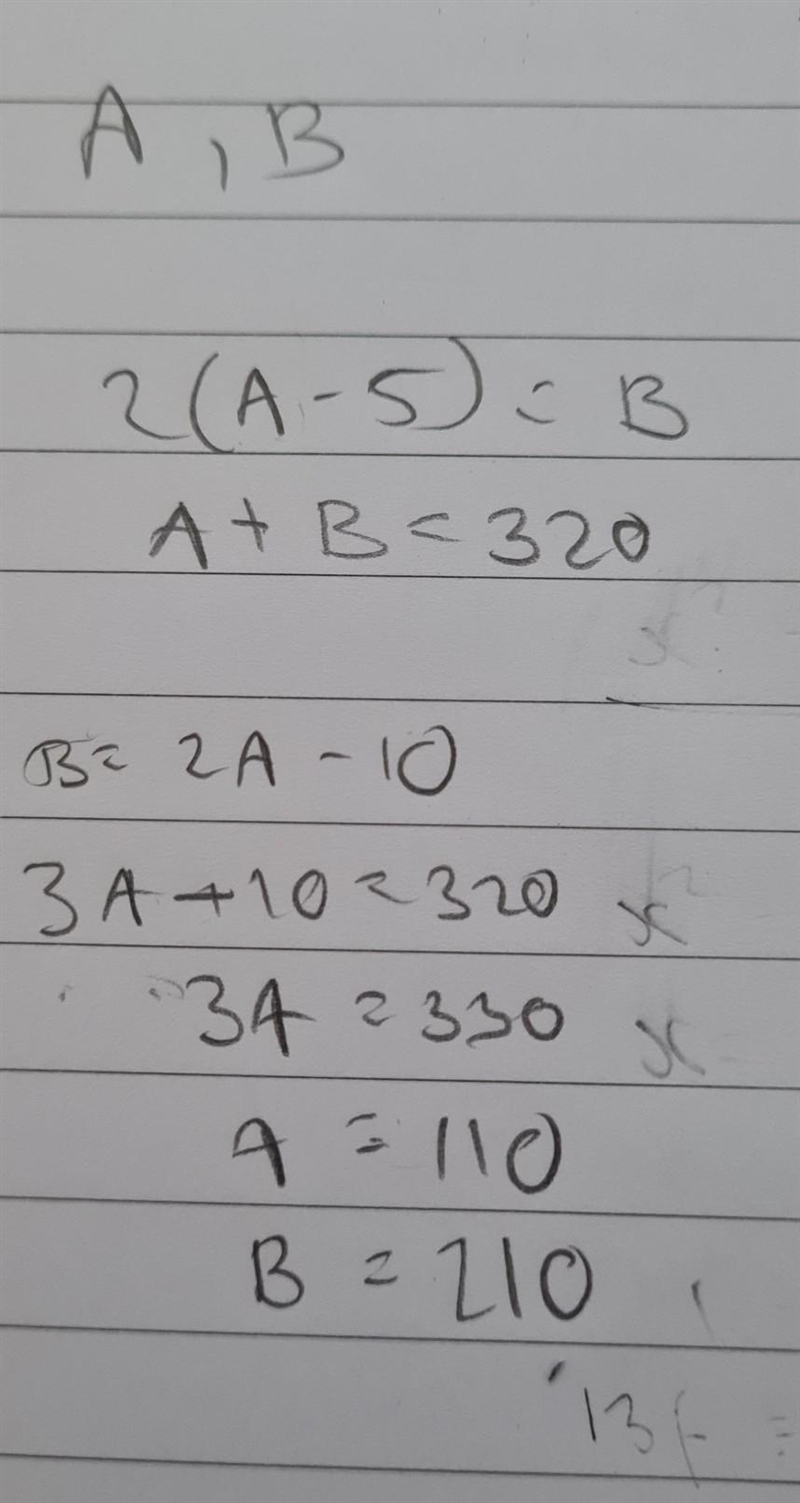 A, B
2(A - 5) = B
A + B = 320
B = 2A - 10
3A + 10 = 320
3A = 330
A = 110
B = 210